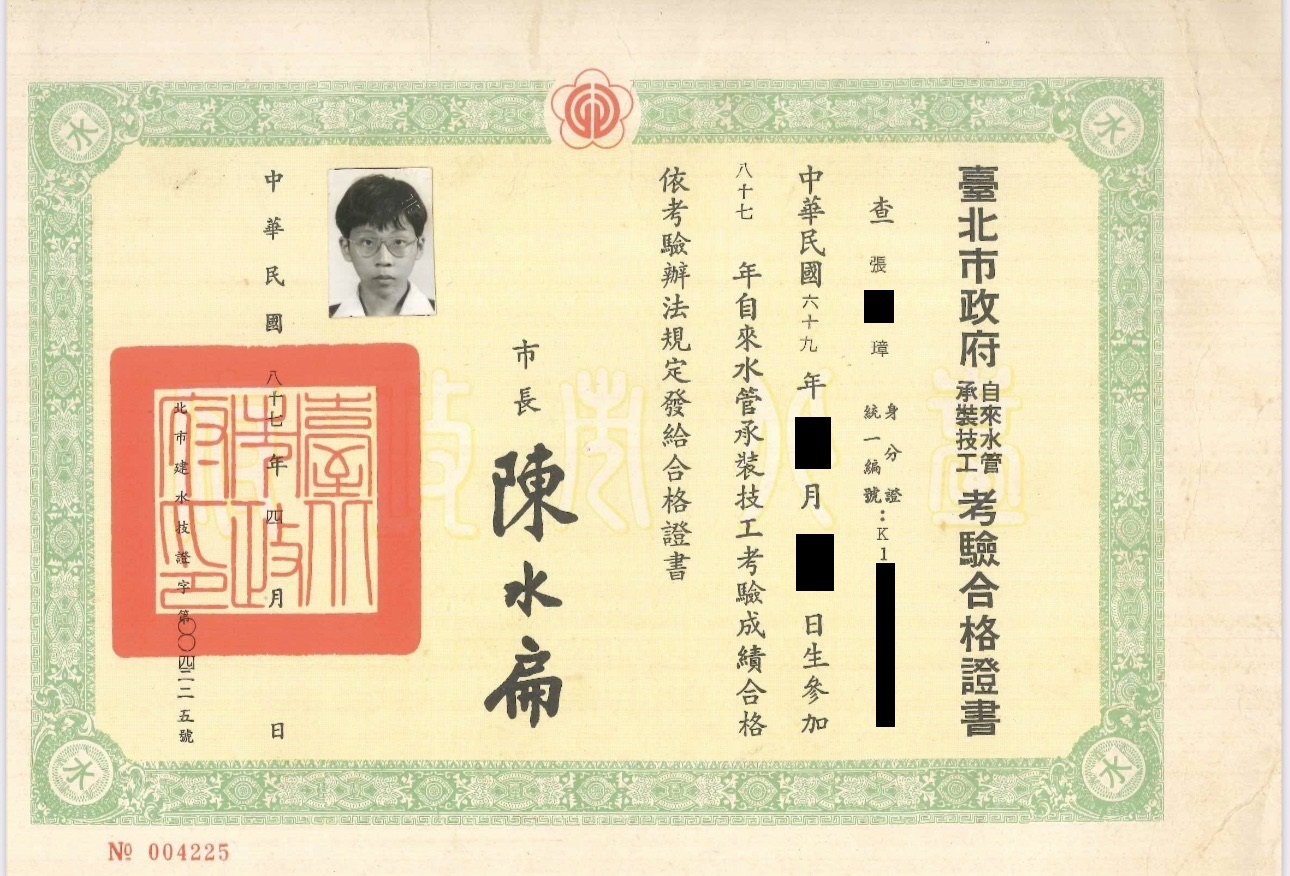 臺北市政府自來水管承裝技工考驗合格證書
查張璋身分證統一編號：K1
中華民國六十九年月日生參加
八十七年自來水管承裝技工考驗成績合格
依考驗辦法規定發給合格證書
市長陳水扁
中華民國八十七年四月日
北市建水技證字第〇〇四二二五號
臺北市政府印
水
水
水
水
№ 004225